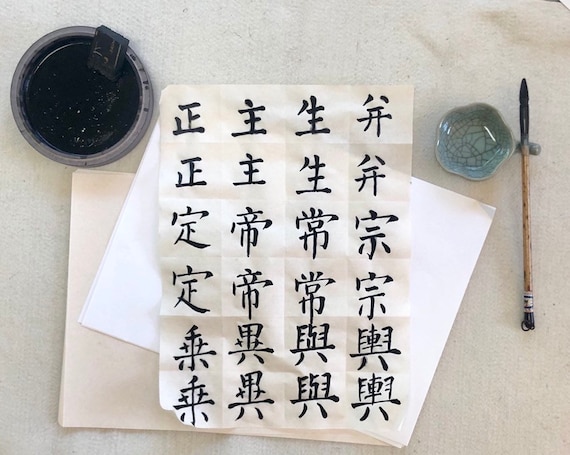 弁弁宗宗輿輿
生生常常與與
主主帝帝異異
正正定定乗乗